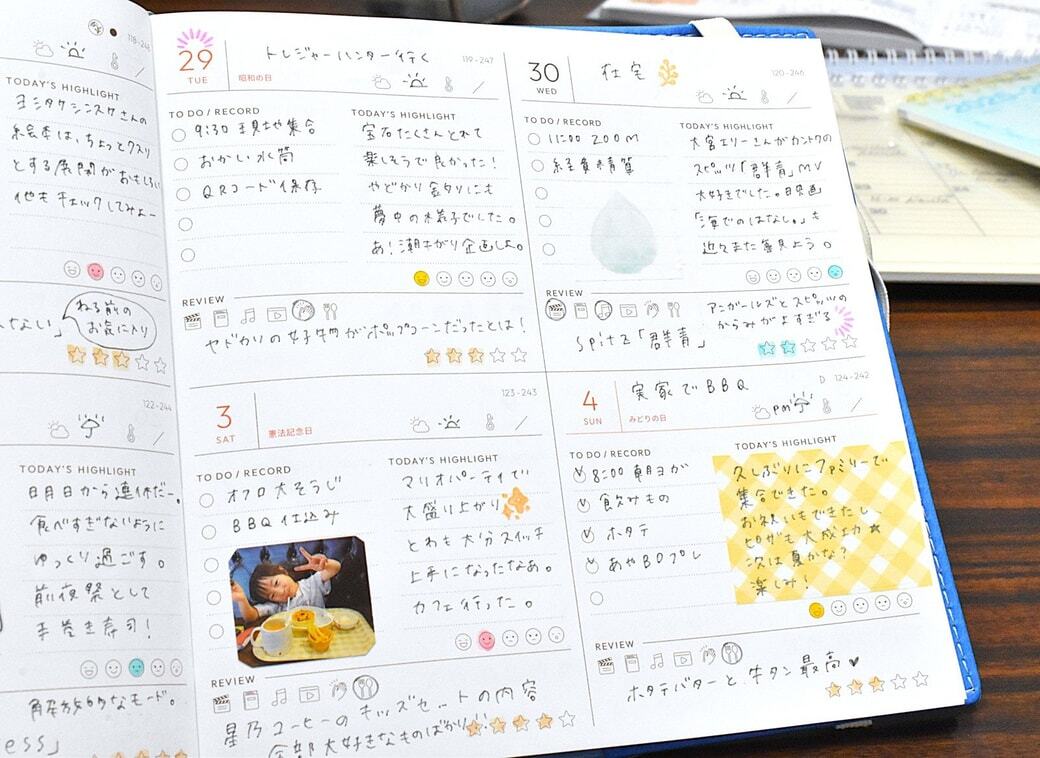 118-248
TODAY'S HIGHLIGHT
ヨシタケシンスケさんの
絵本は、ちょっとクスリ
とする展開がおもしろい
他もチェックしてみよー
ない」
ねる前の
お気に入り
29
TUE
トレジャーハンター行く
昭和の日
119-247
TO DO / RECORD
9:30 集合
おかし 水筒
QRコード保存
TODAY'S HIGHLIGHT
宝石たくさんとれて
楽しそうで良かった!
やどかり釣りにも
夢中の様子でした。
あ!潮干がり企画しよ。
REVIEW
ヤドカリの好物がポップコーンだったとは!
30
WED
在宅
120-246
TO DO / RECORD
11:00 ZOOM
経費精算
TODAY'S HIGHLIGHT
大宮エリーさんがカントクの
スピッツ「群青」MV
大好きでした。
「海でのはなし。」も
近々また見よう。
REVIEW
アンガールズとスピッツの
からみがよすぎる
Spitz「群青」
122-244
TODAY'S HIGHLIGHT
明日から連休だー。
食べすぎないように
ゆっくり過ごす。
前夜祭として
手巻き寿司!
解放的なモード。
ess」
3
SAT
憲法記念日
123-243
TO DO / RECORD
オフロ大そうじ
BBQ仕込み
TODAY'S HIGHLIGHT
マリオパーティで
大盛り上がり
とわも大分スイッチ
上手になったなあ。
カフェ行った。
REVIEW
星乃コーヒーのキッズセットの内容
全部大好きなものばかり!
4
SUN
実家でBBQ
みどりの日
D 124-242
pm
TO DO / RECORD
8:00 朝日が
飲みもの
ホタテ
あやBDプレ
TODAY'S HIGHLIGHT
久しぶりにファミリーで
集合できた。
お祝いもできたし
ピザも大成功★
次は夏かな?
楽しみ!
REVIEW
ホタテバターと牛タン最高♥